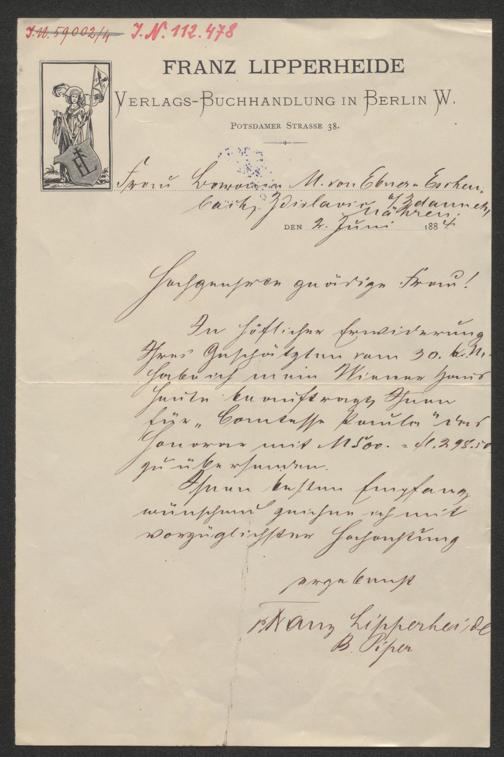 J.N. 59002/4 J.N. 112.478
FRANZ LIPPERHEIDE
VERLAGS-BUCHHANDLUNG IN BERLIN W.
POTSDAMER STRASSE 38.
FL
Frau Baronin M. von Ebner-Eschen-
bach, Zdislavic b/Zdaunek,
Mähren.
DEN 2. Juni 1884
Hochgeehrte gnädige Frau!
In höflicher Erwiderung
Ihres Geschätzten vom 30. v. M.
habe ich mein Wiener Haus
heute beauftragt, Ihnen
für „Comtesse Paula" das
Honorar mit M 500. = fl. 298.50
zu übersenden.
Ihnen besten Empfang
wünschend zeichne ich mit
vorzüglichster Hochachtung
ergebenst
Franz Lipperheide
B. Piper